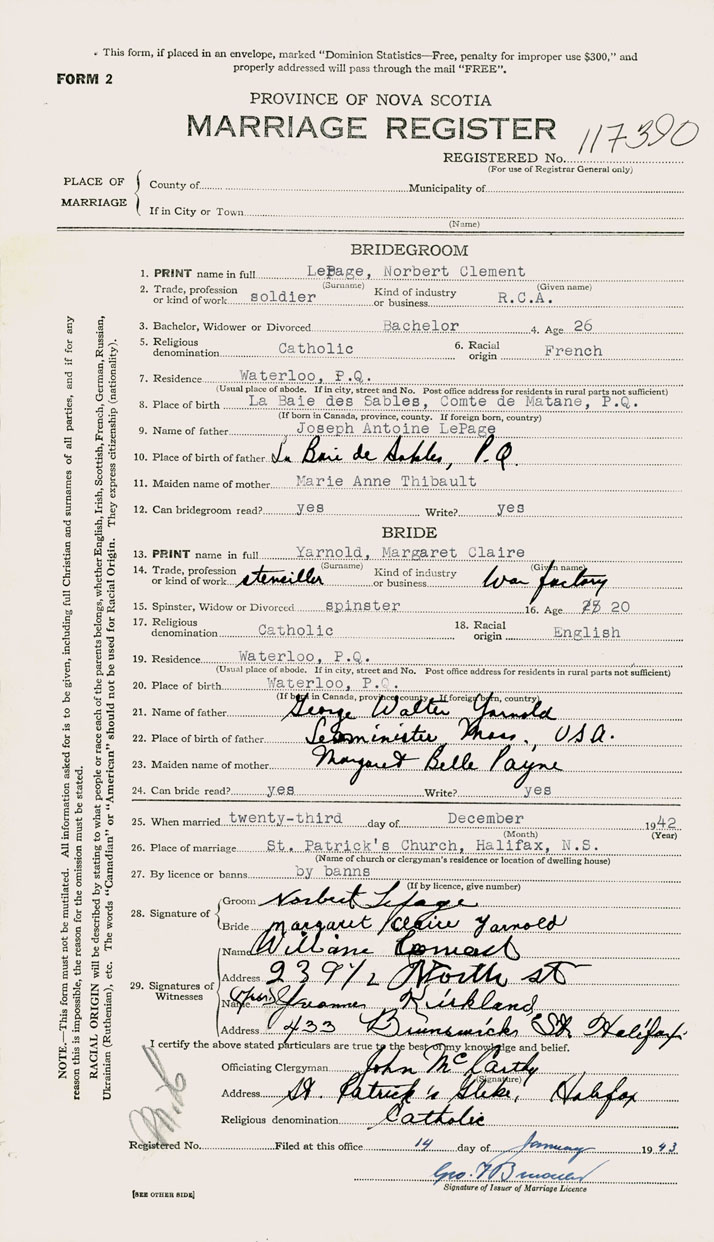 This form, if placed in an envelope, marked "Dominion Statistics—Free, penalty for improper use $300," and
properly addressed will pass through the mail "FREE".
FORM 2
PROVINCE OF NOVA SCOTIA
MARRIAGE REGISTER
REGISTERED No. 117390
(For use of Registrar General only)
PLACE OF MARRIAGE
County of Municipality of
If in City or Town
(Name)
BRIDEGROOM
1. PRINT name in full LePage, Norbert Clement
(Surname) (Given name)
2. Trade, profession or kind of work soldier Kind of industry or business R.C.A.
3. Bachelor, Widower or Divorced Bachelor 4. Age 26
5. Religious denomination Catholic 6. Racial origin French
7. Residence Waterloo, P.Q.
(Usual place of abode. If in city, street and No. Post office address for residents in rural parts not sufficient)
8. Place of birth La Baie des Sables, Comte de Matane, P.Q.
(If born in Canada, province, county. If foreign born, country)
9. Name of father Joseph Antoine LePage
10. Place of birth of father La Baie de Sables, P.Q.
11. Maiden name of mother Marie Anne Thibault
12. Can bridegroom read? yes Write? yes
BRIDE
13. PRINT name in full Yarnold, Margaret Claire
(Surname) (Given name)
14. Trade, profession or kind of work stenciller Kind of industry or business War factory
15. Spinster, Widow or Divorced spinster 16. Age 20
17. Religious denomination Catholic 18. Racial origin English
19. Residence Waterloo, P.Q.
(Usual place of abode. If in city, street and No. Post office address for residents in rural parts not sufficient)
20. Place of birth Waterloo, P.Q.
(If born in Canada, province, county. If foreign born, country)
21. Name of father George Walter Yarnold
22. Place of birth of father Leominister Mass., USA.
23. Maiden name of mother Margaret Belle Payne
24. Can bride read? yes Write? yes
25. When married twenty-third day of December 1942
(Month) (Year)
26. Place of marriage St. Patrick's Church, Halifax, N.S.
(Name of church or clergyman's residence or location of dwelling house)
27. By licence or banns by banns
(If by licence, give number)
28. Signature of
Groom Norbert Lepage
Bride Margaret Claire Yarnold
29. Signatures of Witnesses
Name William
Address 239½ North st
Name Yvonne Kirkland
Address 433 Brunswick St Halifax
I certify the above stated particulars are true to the best of my knowledge and belief.
Officiating Clergyman John McCarthy
(Signature)
Address St. Patrick's Glebe, Halifax
Religious denomination Catholic
Registered No. Filed at this office 14 day of January 1943
Geo.
Signature of Issuer of Marriage Licence
[SEE OTHER SIDE]
NOTE.—This form must not be mutilated. All information asked for is to be given, including full Christian and surnames of all parties, and if for any
reason this is impossible, the reason for the omission must be stated.
RACIAL ORIGIN will be described by stating to what people or race each of the parents belongs, whether English, Irish, Scottish, French, German, Russian,
Ukrainian (Ruthenian), etc. The words "Canadian" or "American" should not be used for Racial Origin. They express citizenship (nationality).